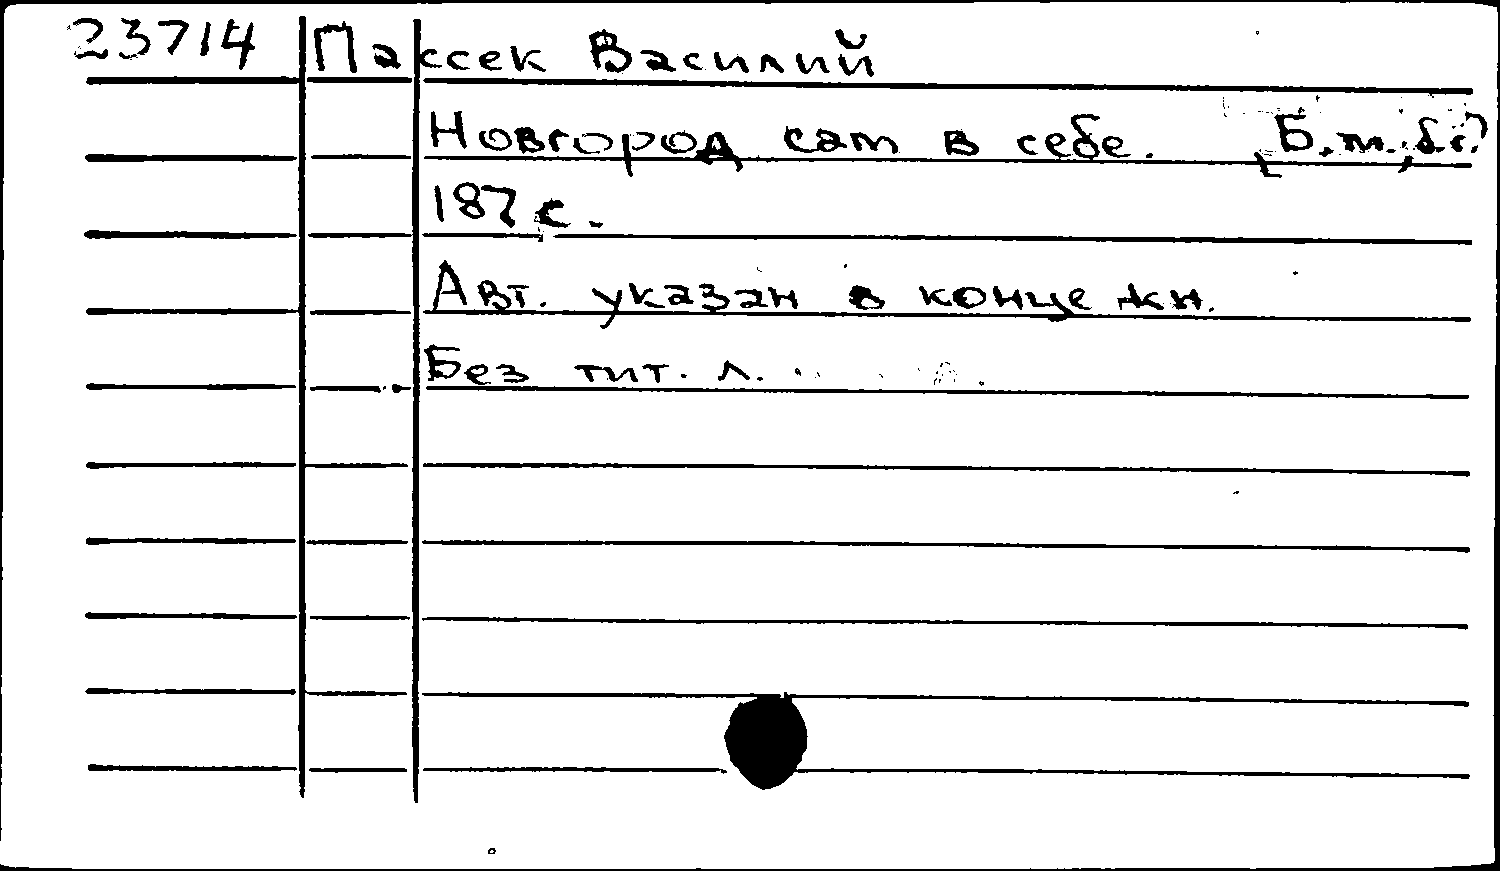 23714 Пассек Василий
Новгород сам в себе. [Б.м., б.г.]
187 с.
Авт. указан в конце кн.
Без тит. л.